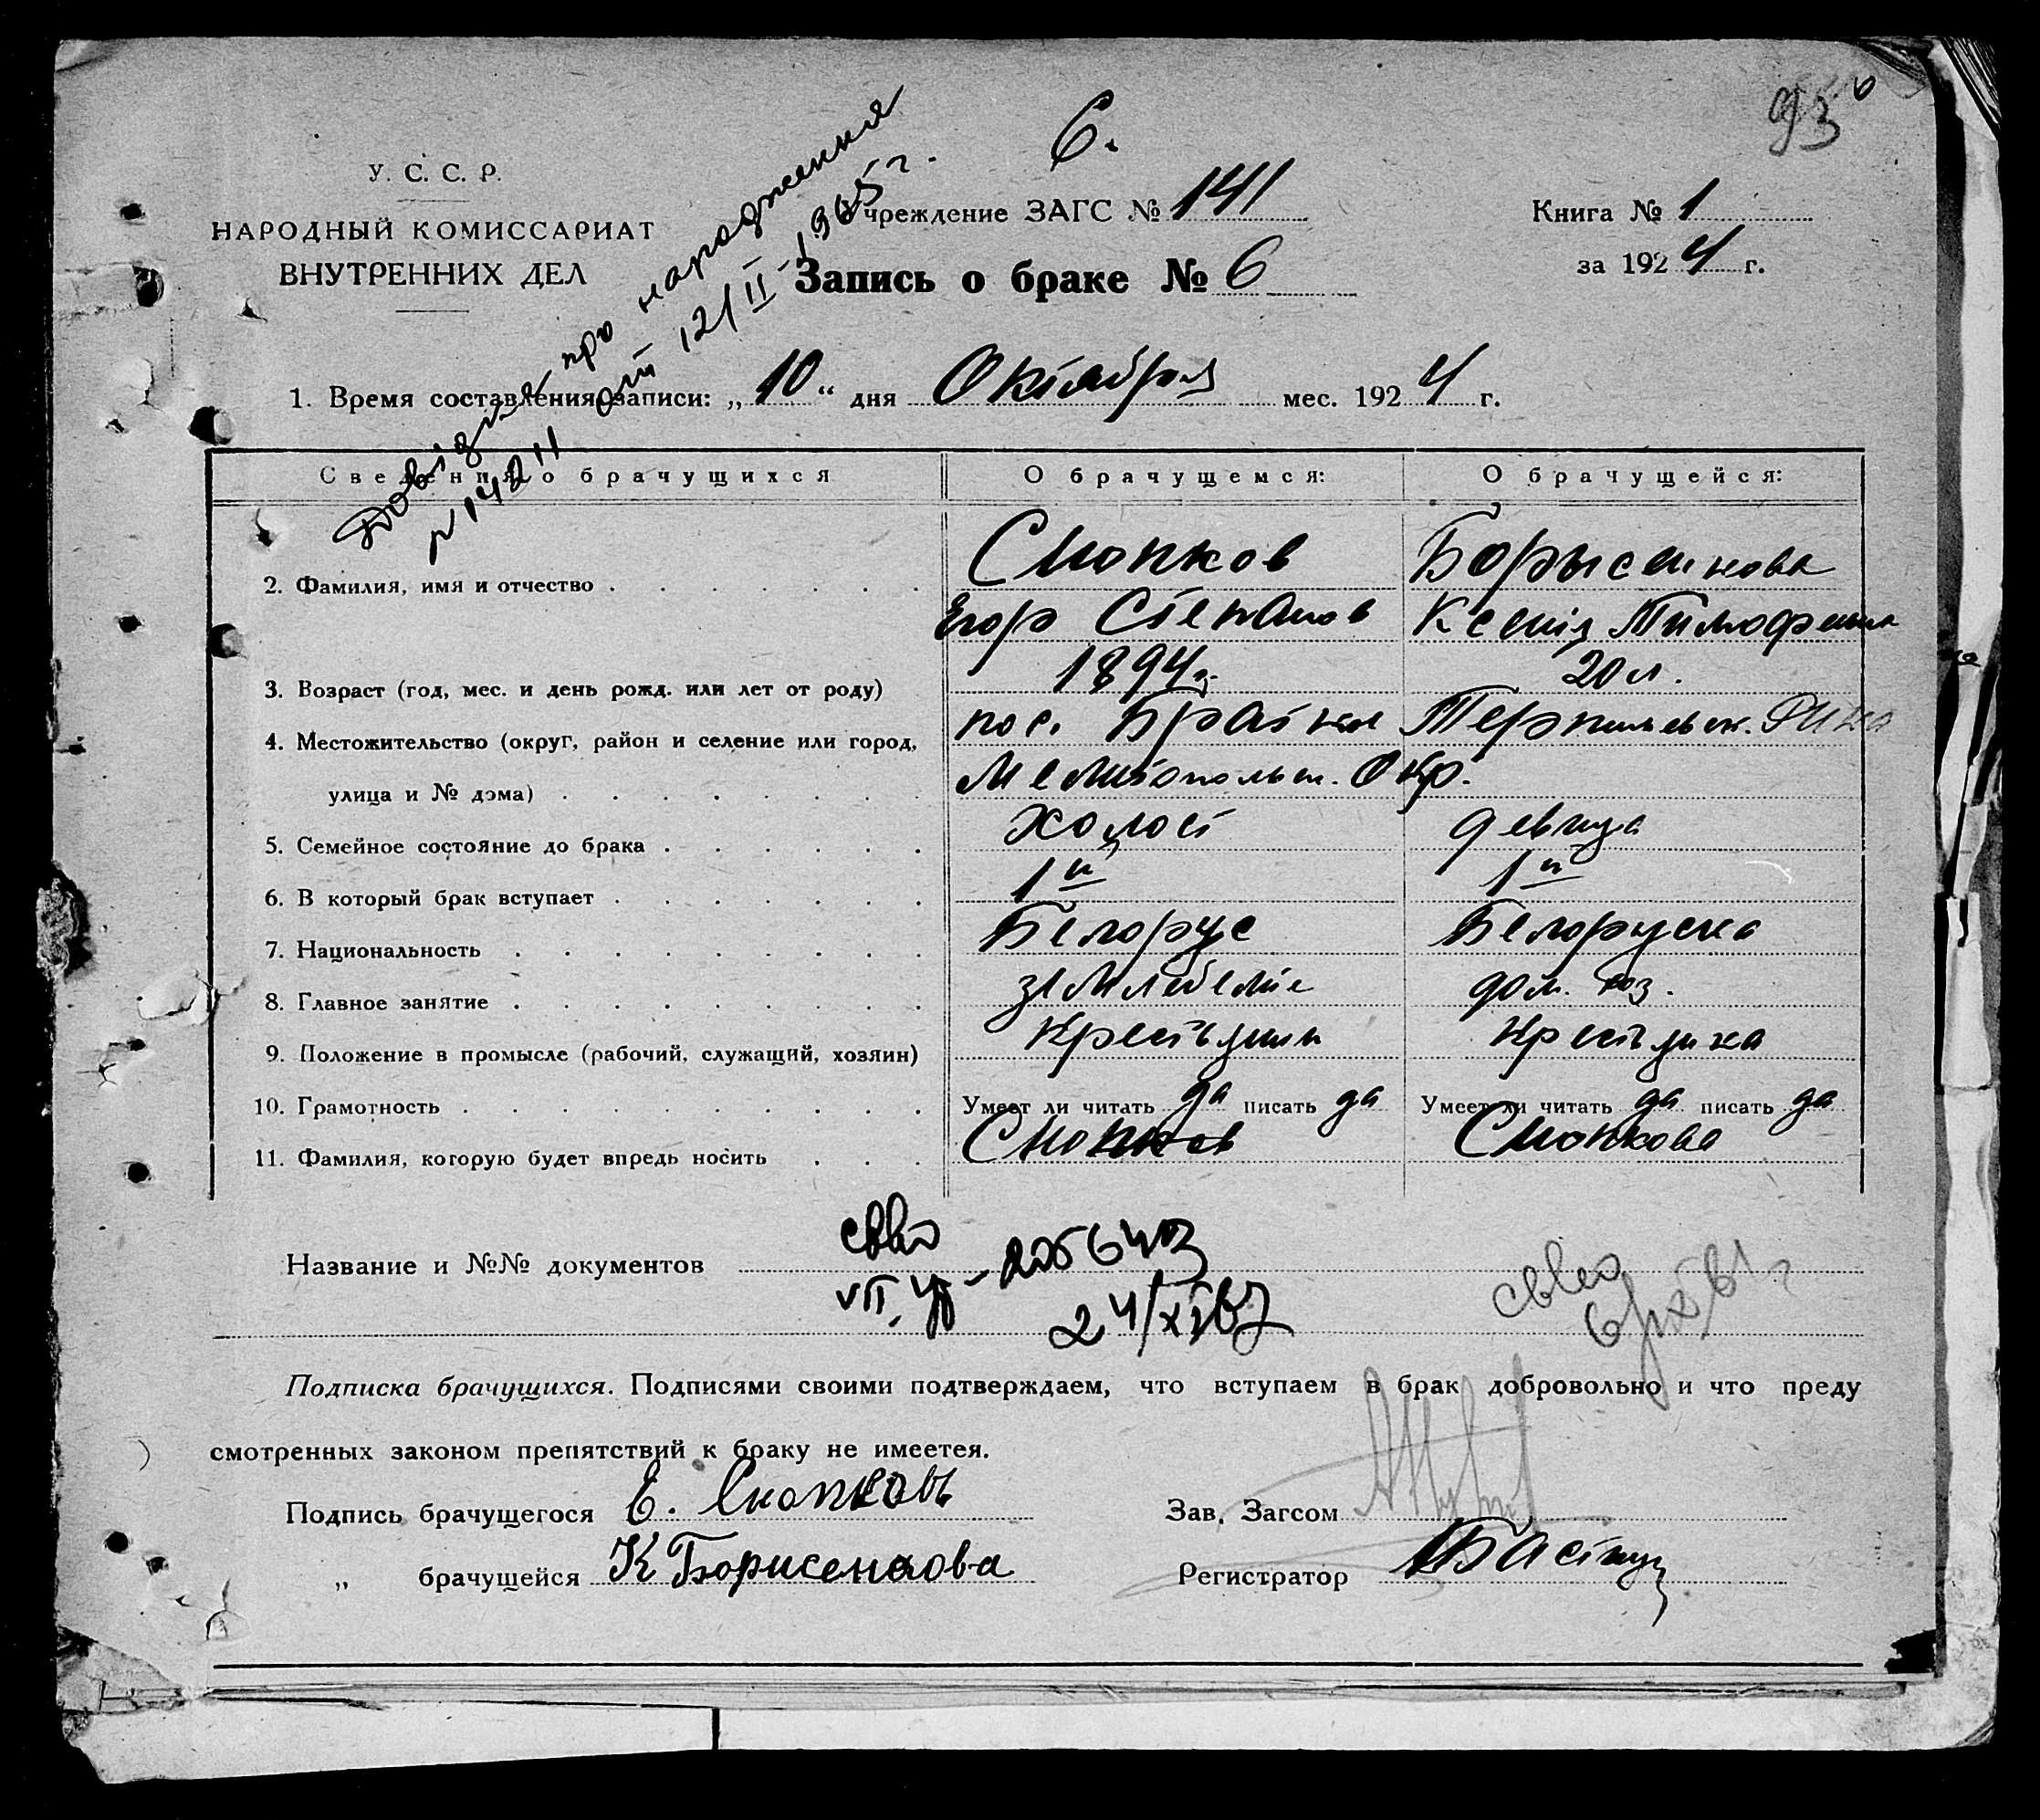 93
6.
У. С. С. Р.
НАРОДНЫЙ КОМИССАРИАТ
ВНУТРЕННИХ ДЕЛ
Учреждение ЗАГС № 141
Книга № 1
за 1924 г.
Запись о браке № 6
Довідка про народження
№ 14211 от 12/II-1965 г.
1. Время составления записи: „10“ дня Октября мес. 1924 г.
Сведения о брачущихся О брачущемся: О брачущейся:
2. Фамилия, имя и отчество Снопков Борысенкова
Егор Степанов Ксенiя Тимофеевна
3. Возраст (год, мес. и день рожд. или лет от роду) 1894 г. 20 л.
4. Местожительство (округ, район и селение или город, пос. Терпеньевск.
улица и № дома) Мелитопольск. Окр.
5. Семейное состояние до брака Холост девица
6. В который брак вступает 1й 1й
7. Национальность Белорус Белоруска
8. Главное занятие земледелiе дом. хоз.
9. Положение в промысле (рабочий, служащий, хозяин) Крестьянин Крестьянка
10. Грамотность Умеет ли читать да писать да Умеет ли читать да писать да
11. Фамилия, которую будет впредь носить Снопков Снопкова
Название и №№ документов
Подписка брачущихся. Подписями своими подтверждаем, что вступаем в брак добровольно и что преду
смотренных законом препятствий к браку не имеетея.
Подпись брачущегося Е. Снопковъ Зав. Загсом
„ брачущейся К Борисенкова Регистратор